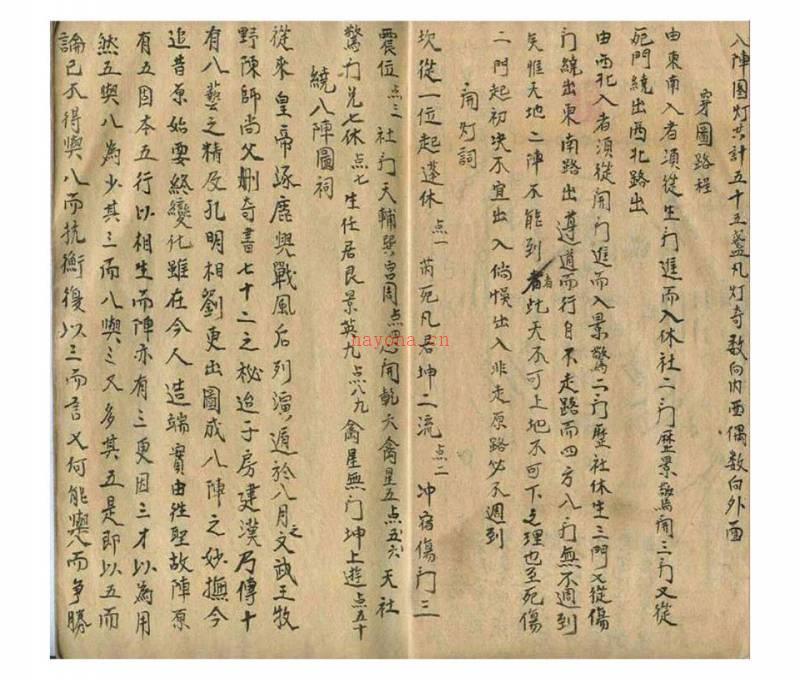 八陣圖灯共計五十五盞凡灯奇数向内面偶数向外面
穿圖路程
由東南入者須從生門進而入休社二門歷景驚開三門又從
死門繞出西北路出
由西北入者須從開門進而入景驚二門歷社休生三門又從傷
門繞出東南路出遵道而行自不走路而四方八門無不週到
矣惟天地二陣不能到者此天不可上地不可下之理也至死傷
二門起初决不宜出入倘悮出入非走原路必不週到
開灯詞
坎從一位起蓬休 点一 芮死凡君坤二流 点二 冲宿傷門三
震位 点三 社門天輔巽宫周 点四 心開乾六禽星五 点五六 天社
驚門兑七休 点七 生任居艮景英九 点八九 禽星無門坤上遊 点五十
繞八陣圖祠
從来皇帝逐鹿興戰風后列演遁於八月之文武王牧
野陳師尚父刪奇書七十二之秘迨子房建漢乃傳十
有八藝之精及孔明相劉更出圖成八陣之妙撫今
追昔原始要終變化雖在今人造端實由徃聖故陣原
有五因本五行以相生而陣亦有三更因三才以為用
然五與八為少其三而八與三又多其五是即以五而
論已不得與八而抗衡復以三而言又何能與八而争勝
nayona.cn